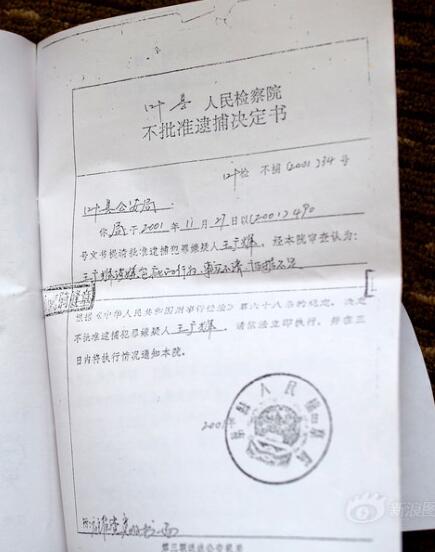 叶县 人民检察院
不批准逮捕决定书
叶检 不捕(2001)34号
叶县公安局:
你局于2001年11月27日以(2001)490
号文书提请批准逮捕犯罪嫌疑人王广辉,经本院审查认为:
事实不清 证据不足
根据《中华人民共和国刑事诉讼法》第六十八条的规定,决定
不批准逮捕犯罪嫌疑人王广辉。请依法立即执行,并在三
日内将执行情况通知本院。
叶县人民检察院
200
第三联送达公安机关
新浪图